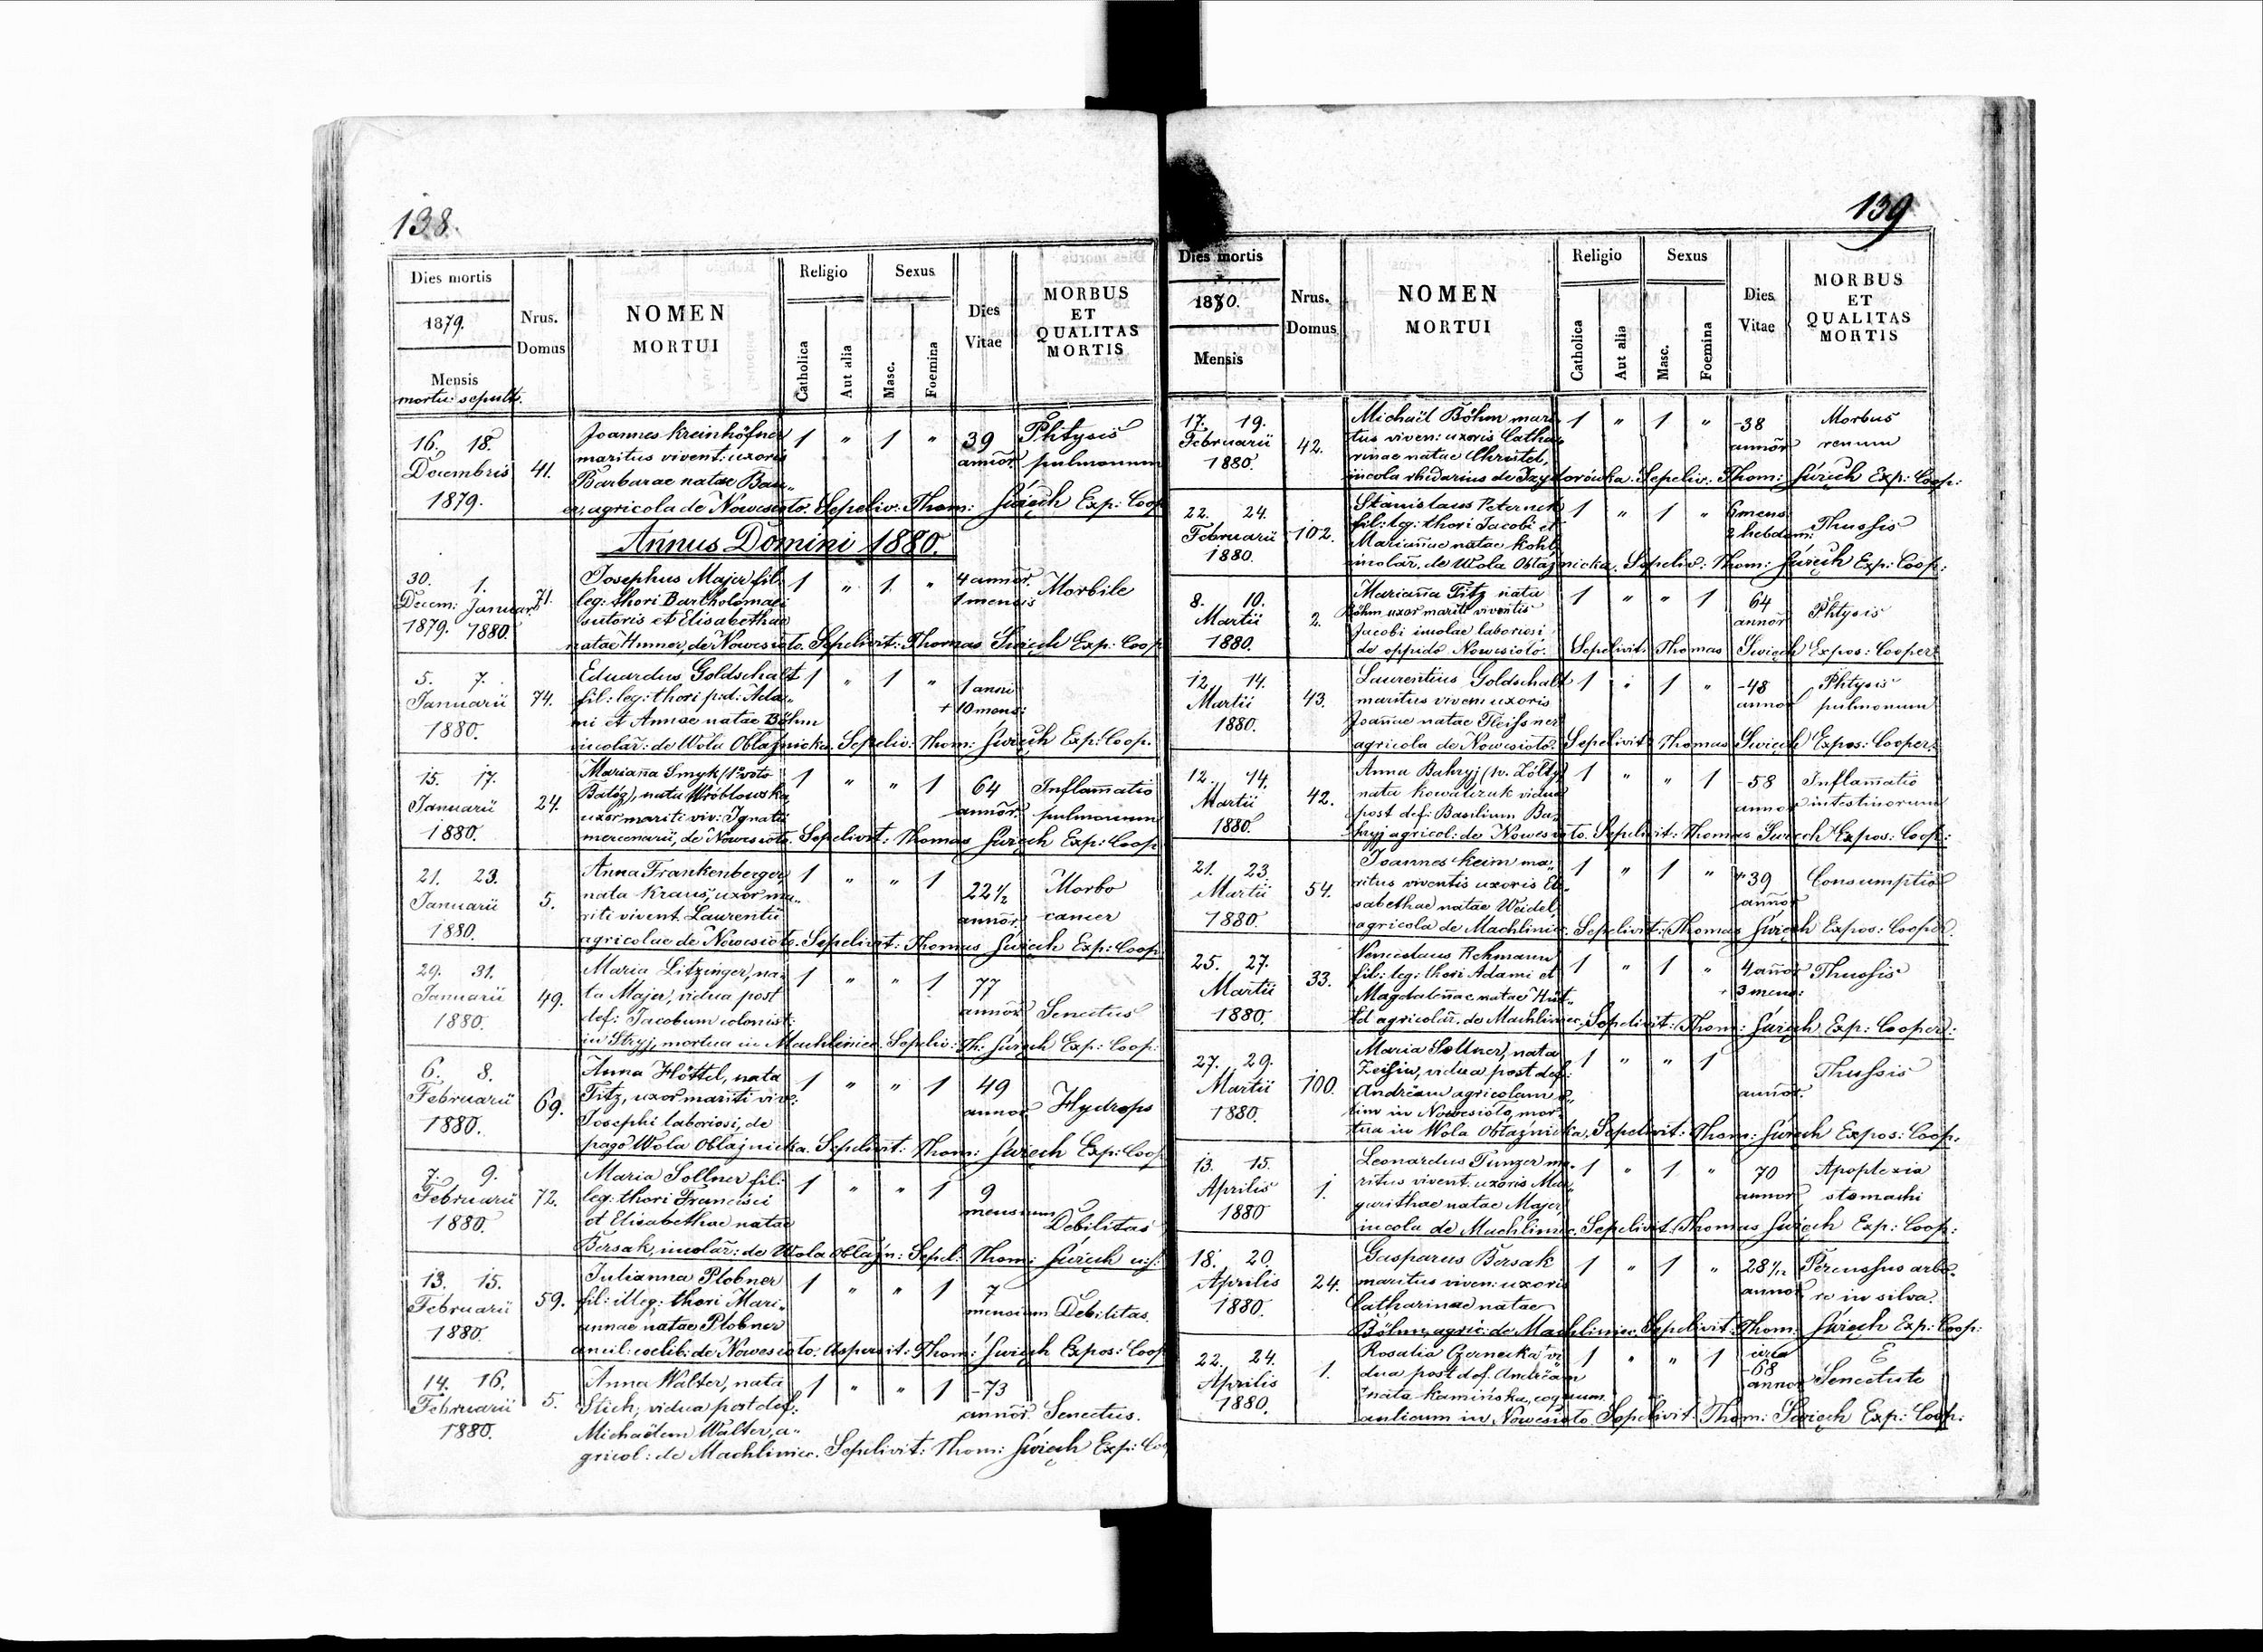 138.
Dies mortis
1879.
Mensis
mortu: sepult:
Nrus.
Domus
NOMEN
MORTUI
Religio
Catholica
Aut alia
Sexus
Masc.
Foemina
Dies
Vitae
MORBUS
ET
QUALITAS
MORTIS
16. 18. Joannes Kreinhöfner 1 " 1 " 39 Phtysis
Decembris 41. maritus vivent: uxoris annor. pulmonum
1879. Barbarae natae Bau-
er, agricola de Nowesioto. Sepeliv: Thom: Święch Exp: Coop
Annus Domini 1880.
30. 1. Josephus Majer fil: 1 " 1 " 4 annor. Morbile
Decem: Januar 71. leg: thori Bartholomaei 1 mensis
1879. 1880. sutoris et Elisabethae
natae Hmner, de Nowesioto. Sepelivit: Thomas Święch Exp: Coop
5. 7. Eduardus Goldschalt 1 " 1 " 1 anni
Januarii 74. fil: leg: thori pid: Ada- + 10 mens:
1880. mi et Annae natae Böhm
incolar: de Wola Obłaźnicka. Sepeliv: Thom: Święch Exp: Coop.
15. 17. Marianna Smyk (1º voto 1 " " 1 64 Inflamatio
Januarii 24. Batóg), nata Wróblowska, annor. pulmonum
1880. uxor mariti viv: Ignatii
mercenarii, de Nowesioto. Sepelivit: Thomas Święch Exp: Coop
21. 23. Anna Frankenberger, 1 " " 1 22 1/2 Morbo
Januarii 5. nata Kraus, uxor ma- annor. cancer
1880. riti vivent. Laurentii
agricolae de Nowesioto. Sepelivit: Thomas Święch Exp: Coop
29. 31. Maria Litzinger, na- 1 " " 1 77
Januarii 49. ta Majer, vidua post annor. Senectus
1880. def: Jacobum colonist:
in Stryj, mortua in Machliniec. Sepeliv: Th: Święch Exp: Coop:
6. 8. Anna Höttel, nata 1 " " 1 49
Februarii 69. Titz, uxor mariti viv: annor Hydrops
1880. Josephi laboriosi, de
pago Wola Obłaźnicka. Sepelivit: Thom: Święch Exp: Coop
7. 9. Maria Sollner fil: 1 " " 1 9
Februarii 72. leg: thori Francisci mensium
1880. et Elisabethae natae Debilitas
Bersak, incolar: de Wola Obłaźn: Sepel: Thom: Święch
13. 15. Julianna Plobner 1 " " 1 7
Februarii 59. fil: illeg: thori Mari- mensium Debilitas.
1880. annae natae Plobner
ancil: coelib: de Nowesioto. Aspersit: Thom: Święch Expos: Coop
14. 16. Anna Walter, nata 1 " " 1 -73
Februarii 5. Stich, vidua post def: annor. Senectus.
1880. Michaëlem Walter, a-
gricol: de Machliniec. Sepelivit: Thom: Święch Exp: Coo
139
Dies mortis
1880.
Mensis
Nrus.
Domus
NOMEN
MORTUI
Religio
Catholica
Aut alia
Sexus
Masc.
Foemina
Dies
Vitae
MORBUS
ET
QUALITAS
MORTIS
17. 19. Michaël Böhm mari- 1 " 1 " -38 Morbus
Februarii 42. tus viven: uxoris Catha- annor renum
1880. rinae natae Christel,
incola rhedarius de Izydorówka. Sepeliv: Thom: Święch Exp: Coop:
22. 24. Stanislaus Peternek 1 " 1 " 6 mens:
Februarii 102. fil: leg: thori Jacobi et 2 hebdom: Thussis
1880. Mariannae natae Kohl
incolar. de Wola Obłaźnicka. Sepeliv: Thom: Święch Exp: Coop:
8. 10. Marianna Titz nata 1 " " 1 64
Martii 2. Böhm uxor mariti viventis annor Phtysis
1880. Jacobi incolae laboriosi
de oppido Nowesioto. Sepelivit: Thomas Święch Expos: Cooper:
12. 14. Laurentius Goldschalt 1 " 1 " -48 Phtysis
Martii 43. maritus viven: uxoris annor pulmonum
1880. Joannae natae Fleissner
agricola de Nowesioto. Sepelivit: Thomas Święch Expos: Cooper:
12. 14. Anna Bahryj (1v. Żółty) 1 " " 1 -58 Inflamatio
Martii 42. nata Kowalczuk vidua annor intestinorum
1880. post def: Basilium Ba-
hryj agricol: de Nowesioto. Sepelivit: Thomas Święch Expos: Coop:
21. 23. Joannes Keim ma- 1 " 1 " +39 Consumptio
Martii 54. ritus viventis uxoris Eli- annor
1880. sabethae natae Weidel,
agricola de Machliniec. Sepelivit: Thomas Święch Expos: Cooper.
25. 27. Venceslaus Rehmann 1 " 1 " 4 annor Thussis
Martii 33. fil: leg: thori Adami et 3 mens:
1880. Magdalennae natae Hüt-
tel agricolar. de Machliniec. Sepelivit: Thom: Święch Exp: Cooper:
27. 29. Maria Sollner, nata 1 " " 1 Thussis
Martii 100. vidua post def: annor.
1880. Andream agricolam o-
lim in Nowesioto, mor-
tua in Wola Obłaźnicka, Sepelivit: Thom: Święch Expos: Coop.
13. 15. Leonardus Tunzer ma- 1 " 1 " 70 Apoplexia
Aprilis 1. ritus vivent: uxoris Mar- annor stomachi
1880 garithae natae Majer,
incola de Machliniec. Sepelivit: Thomas Święch Exp: Coop:
18. 20. Gasparus Bersak 1 " 1 " 28 1/12 Percussus arbo-
Aprilis 24. maritus viven: uxoris annor re in silva.
1880. Catharinae natae
Böhm, agric: de Machliniec. Sepelivit: Thom: Święch Exp: Coop:
22. 24. Rosalia Czernecka vi- 1 " " 1 circa E
Aprilis 1. dua post def. Andream -68 Senectute
1880. nata Kamińska, coquum annor
aulicum in Nowesioto. Sepelivit: Thom: Święch Exp: Coop: